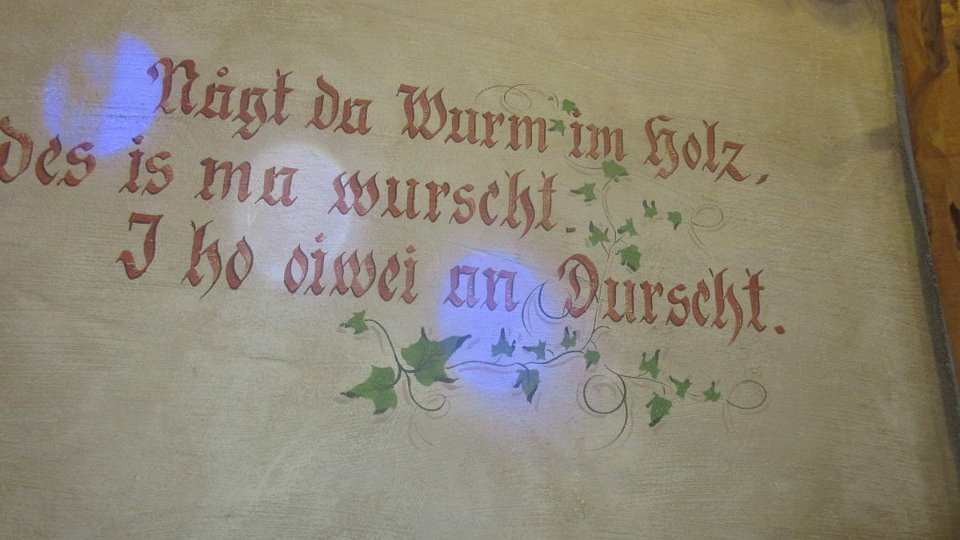 Någt da Wurm im Holz,
des is ma wurscht.
I ho oiwei an Durscht.